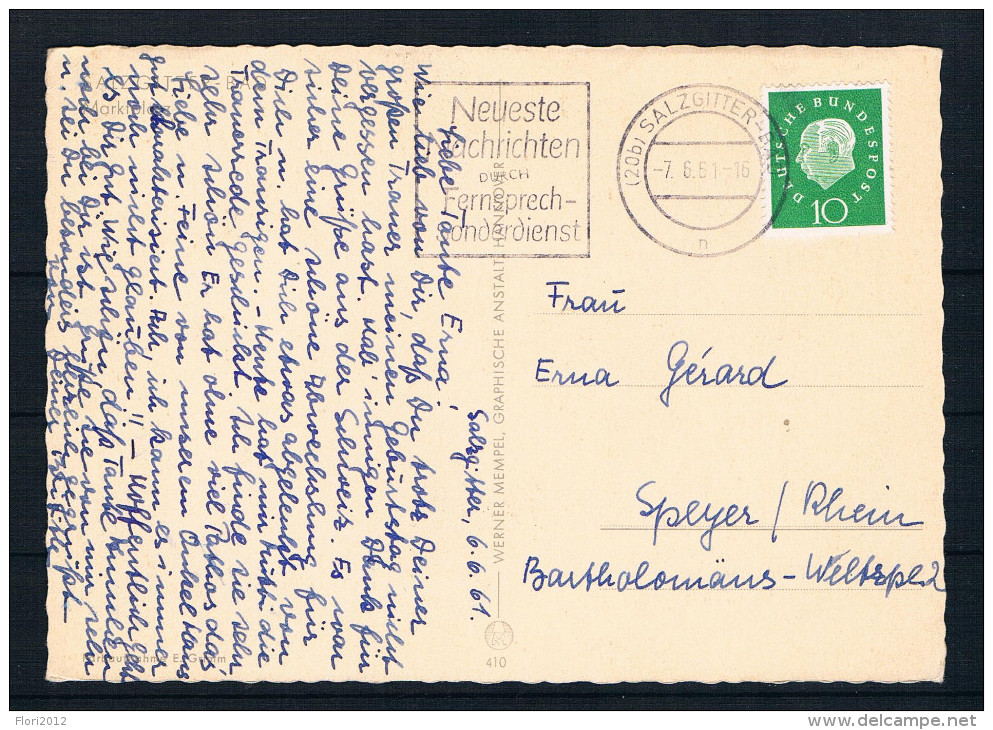 SALZGITTER-BA
Marktplatz
Neueste
Nachrichten
DURCH
Fernsprech-
Sonderdienst
(20b) SALZGITTER-BAD
-7. 6.61-16
n
DEUTSCHE BUNDESPOST
10
Salzgitter, 6. 6. 61.
Liebe Tante Erna!
Wie lieb von Dir, daß Du trotz Deiner
großen Trauer meinen Geburtstag nicht
vergessen hast. Hab' innigen Dank für
Deine Grüße aus der Schweiz. Es war
sicher eine schöne Abwechslung für
Dich u. hat Dich etwas abgelenkt von
dem Traurigen. - Heute hat mir die
Trauerrede geschickt. Ich finde sie sehr,
sehr schön. Er hat ohne viel Pathos das
Liebe u. Feine von unserem Onkel Hans
gut charakterisiert. Ach, ich kann es immer
noch nicht glauben!! - Hoffentlich geht
es Dir gut. Wie schön, daß Tante
noch bei Dir ist. Grüße sie von mir sehr
u. sei Du besonders herzlich gegrüßt
von Deiner
Frau
Erna Gérard
Speyer / Rhein
Bartholomäus-Weltzpl. 2
WERNER MEMPEL, GRAPHISCHE ANSTALT, HANNOVER
410
Farbaufnahme E. Grimm
Flori2012
delcampe.net